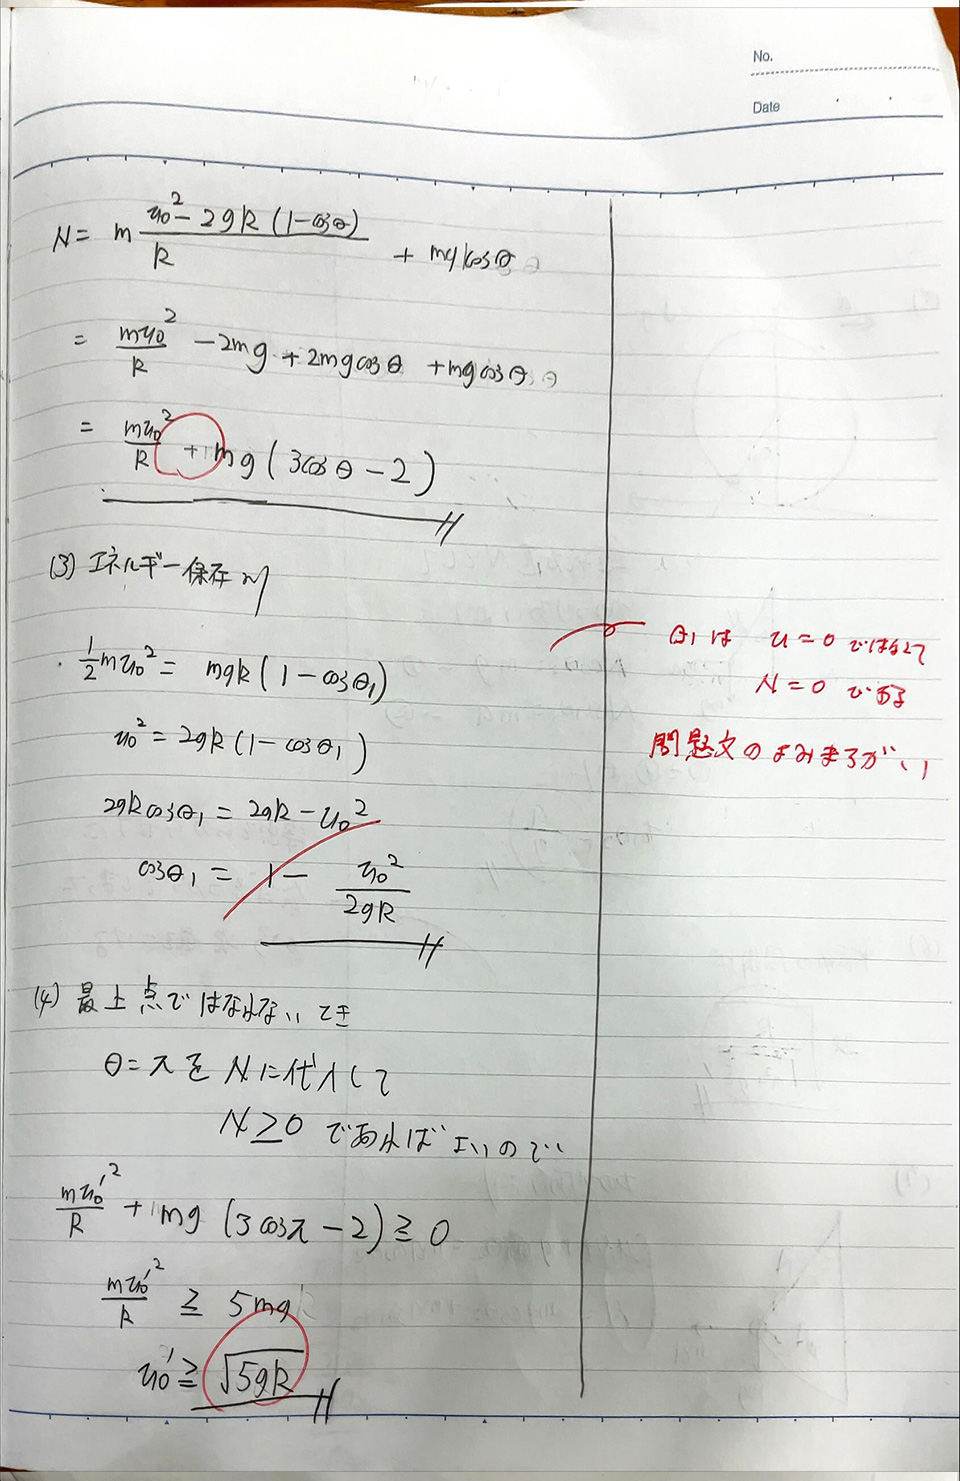 No.
Date
N = m (u₀² - 2gR(1-cosθ))/R + mg cosθ
= mu₀²/R - 2mg + 2mg cosθ + mg cosθ
= mu₀²/R + mg(3cosθ - 2)
(3) エネルギー保存より
1/2 mu₀² = mgR(1 - cosθ₁)
u₀² = 2gR(1 - cosθ₁)
2gR cosθ₁ = 2gR - u₀²
cosθ₁ = 1 - u₀²/2gR
θ₁は u=0 ではなくて
N=0 である
問題文のよみまちがい
(4) 最上点ではなれないとき
θ=πを Nに代入して
N≧0 であればよいので
mu₀'²/R + mg(3cosπ - 2) ≧ 0
mu₀'²/R ≧ 5mg
u₀' ≧ √5gR